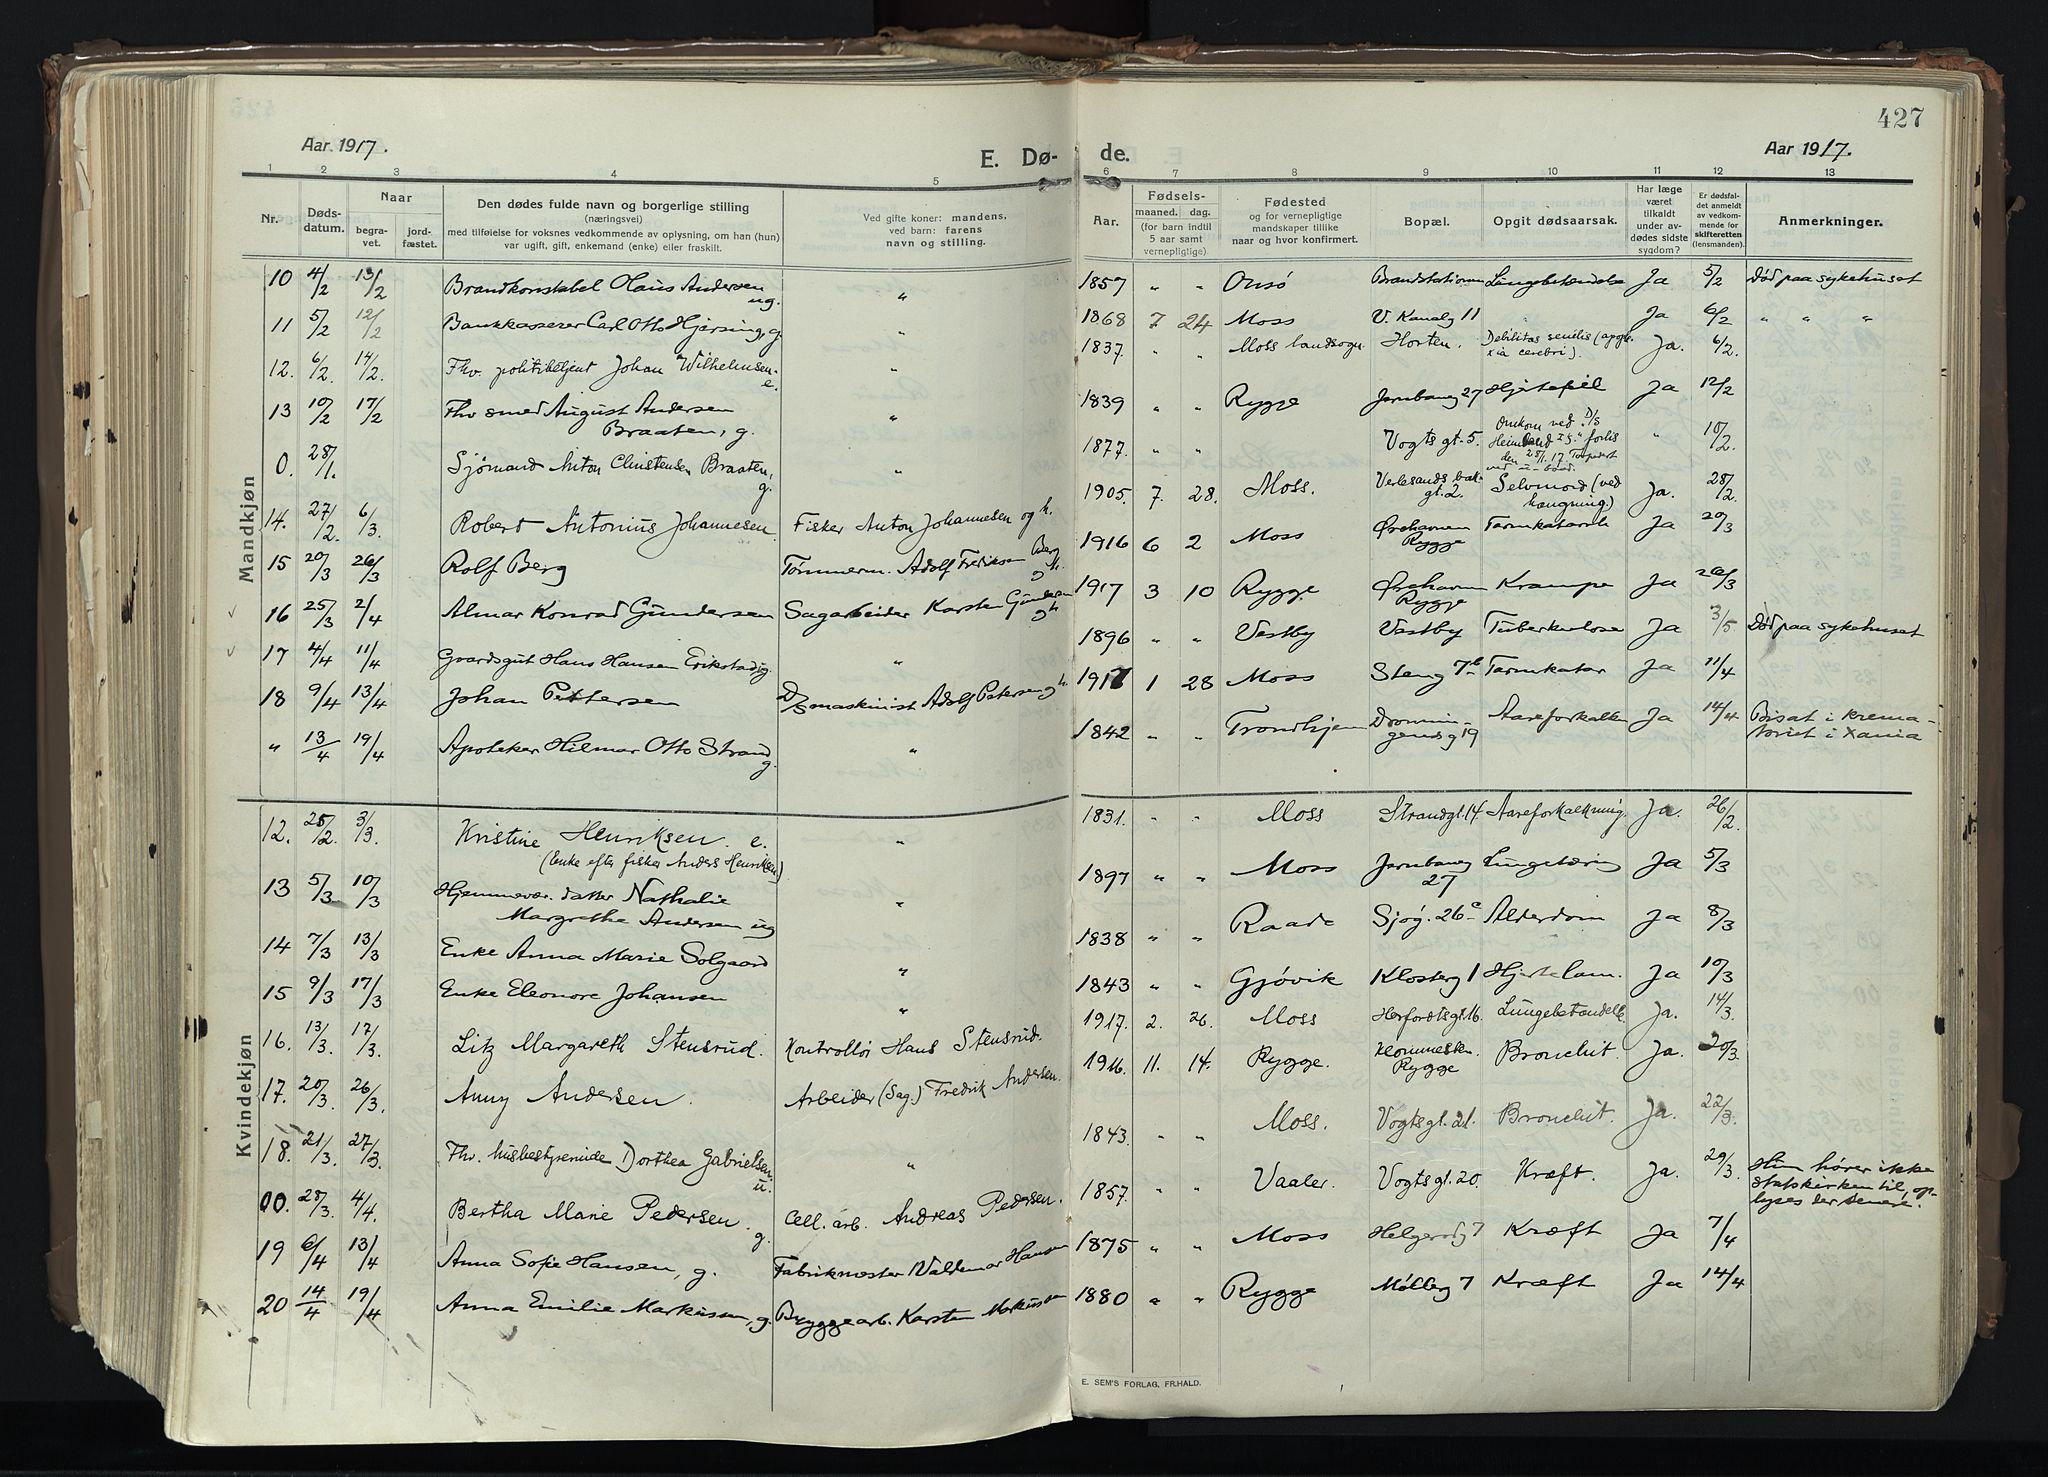 427
Aar 1917.
E. Dø-
de.
Aar 1917.
1 2 3 4 5 6 7 8 9 10 11 12 13
Nr.
Døds-
datum.
Naar
begra-
vet.
jord-
fæstet.
Den dødes fulde navn og borgerlige stilling
(næringsvei)
med tilføielse for voksnes vedkommende av oplysning, om han (hun)
var ugift, gift, enkemand (enke) eller fraskilt.
Ved gifte koner: mandens,
ved barn: farens
navn og stilling.
Aar.
Fødsels-
maaned. dag.
(for barn indtil
5 aar samt
vernepligtige).
Fødested
og for vernepligtige
mandskaper tillike
naar og hvor konfirmert.
Bopæl.
Opgit dødsaarsak.
Har læge
været
tilkaldt
under av-
dødes sidste
sygdom?
Er dødsfal-
det anmeldt
av vedkom-
mende for
skifteretten
(lensmanden).
Anmerkninger.
Mandkjøn
10 4/2 13/2 Brandkonstabel Olaus Andersen ug. " 1857 " " Onsø Brandstationen Lungebetændelse Ja 5/2 Død paa sykehuset
11 5/2 12/2 Bankkasserer Carl Otto Hjersing, g. " 1868 7 24 Moss V. Kanalg 11 " Ja 6/2 " " "
12. 6/2. 14/2. Fhv. politibetjent Johan Wilhelmsen- e. " 1837. " " Moss landsogn. Horten. Debilitas senilis (apople-
xia cerebri). Ja. 6/2.
13 10/2 17/2 Fhv smed August Andersen
Braaten, g. " 1839 " " Rygge Jernbaneg 27 Hjertefeil Ja 12/2
0. 28/1. Sjømand Anton Christensen Braaten, g. " 1877. " " Vogts gt. 5. Omkom ved D/S
Heimland I's forlis
den 28/1. 17. Torpedert
" 10/2.
14. 27/2. 6/3. Robert Antonius Johannesen. Fisker Anton Johannesen og h. 1905. 7. 28. Moss. Verlesands bak-
gt. 2. Selvmord (ved
hængning) Ja. 28/2.
15 20/3 26/3 Rolf Berg Tømmerm. Adolf Fredriksen Berg og h. 1916 6 2 Moss Ørehavnen
Rygge Tarmkatarrh Ja 20/3
16 25/3 2/4 Almar Konrad Gundersen Sagarbeider Karsten Gundersen og h. 1917 3 10 Rygge Ørehavnen
Rygge Krampe Ja 26/3
17 4/4 11/4 Gaardsgut Hans Hansen Erikstad ug. " 1896 " " Vestby Vestby Tuberkulose Ja 3/5 Død paa sykehuset
18 9/4 13/4 Johan Pettersen D/Smaskinist Adolf Petersen og h. 1917 1 28 Moss Steng 7b Tarmkatar Ja 11/4
" 13/4 19/4 Apoteker Hilmar Otto Strand g. " 1842 " " Trondhjem Dronnin-
gensg 19 Aareforkalkn Ja 14/4 Bisat i krema-
toriet i Xania
Kvindekjøn
12. 25/2. 3/3. Kristine Henriksen. e.
(enke efter fisker Anders Henriksen) " 1831. " " Moss Strandgt. 14 Aareforkalkning. Ja. 26/2.
13 5/3 10/3 Hjemmevær. datter Nathalie
Margrethe Andersen ug " 1897 " " Moss Jernbaneg
27 Lungetæring Ja 5/3
14 7/3 13/3 Enke Anna Marie Solgaard " 1838 " " Raade Sjøg. 26c Alderdom Ja 8/3
15 9/3 17/3 Enke Eleonore Johansen " 1843 " " Gjøvik Klosterg 1 Hjertelam. Ja 10/3
16. 13/3. 17/3. Litz Margareth Stensrud. Kontrollør Hans Stensrud. 1917. 2. 26. Moss Herfordtsgt. 16. Lungebetændelse. Ja. 14/3.
17. 20/3. 26/3. Anny Andersen. Arbeider (Sag.) Fredrik Andersen. 1916. 11. 14. Rygge. Kommesten
Rygge Bronchit. Ja. 20/3.
18. 21/3. 27/3. Fhv. husbestyrerinde Dorthea Gabrielsen. u. " 1843. " " Moss. Vogtsgt. 21. Bronchit. Ja. 22/3.
00. 28/3. 4/4. Bertha Marie Pedersen. g. Cell. arb. Andreas Pedersen. 1857. " " Vaaler. Vogtsgt. 20. Kræft. Ja. 29/3. Hun hører ikke
statskirken til, op-
lyses der senere!
19 6/4 13/4 Anna Sofie Hansen, g. Fabrikmester Valdemar Hansen 1875 " " Moss Helgerødg 7 Kræft Ja 7/4
20 14/4 19/4 Anna Emilie Markussen, g. Bryggearb. Karsten Markussen 1880 " " Rygge Mølleg 7 Kræft Ja 14/4
E. SEM'S FORLAG, FR.HALD.